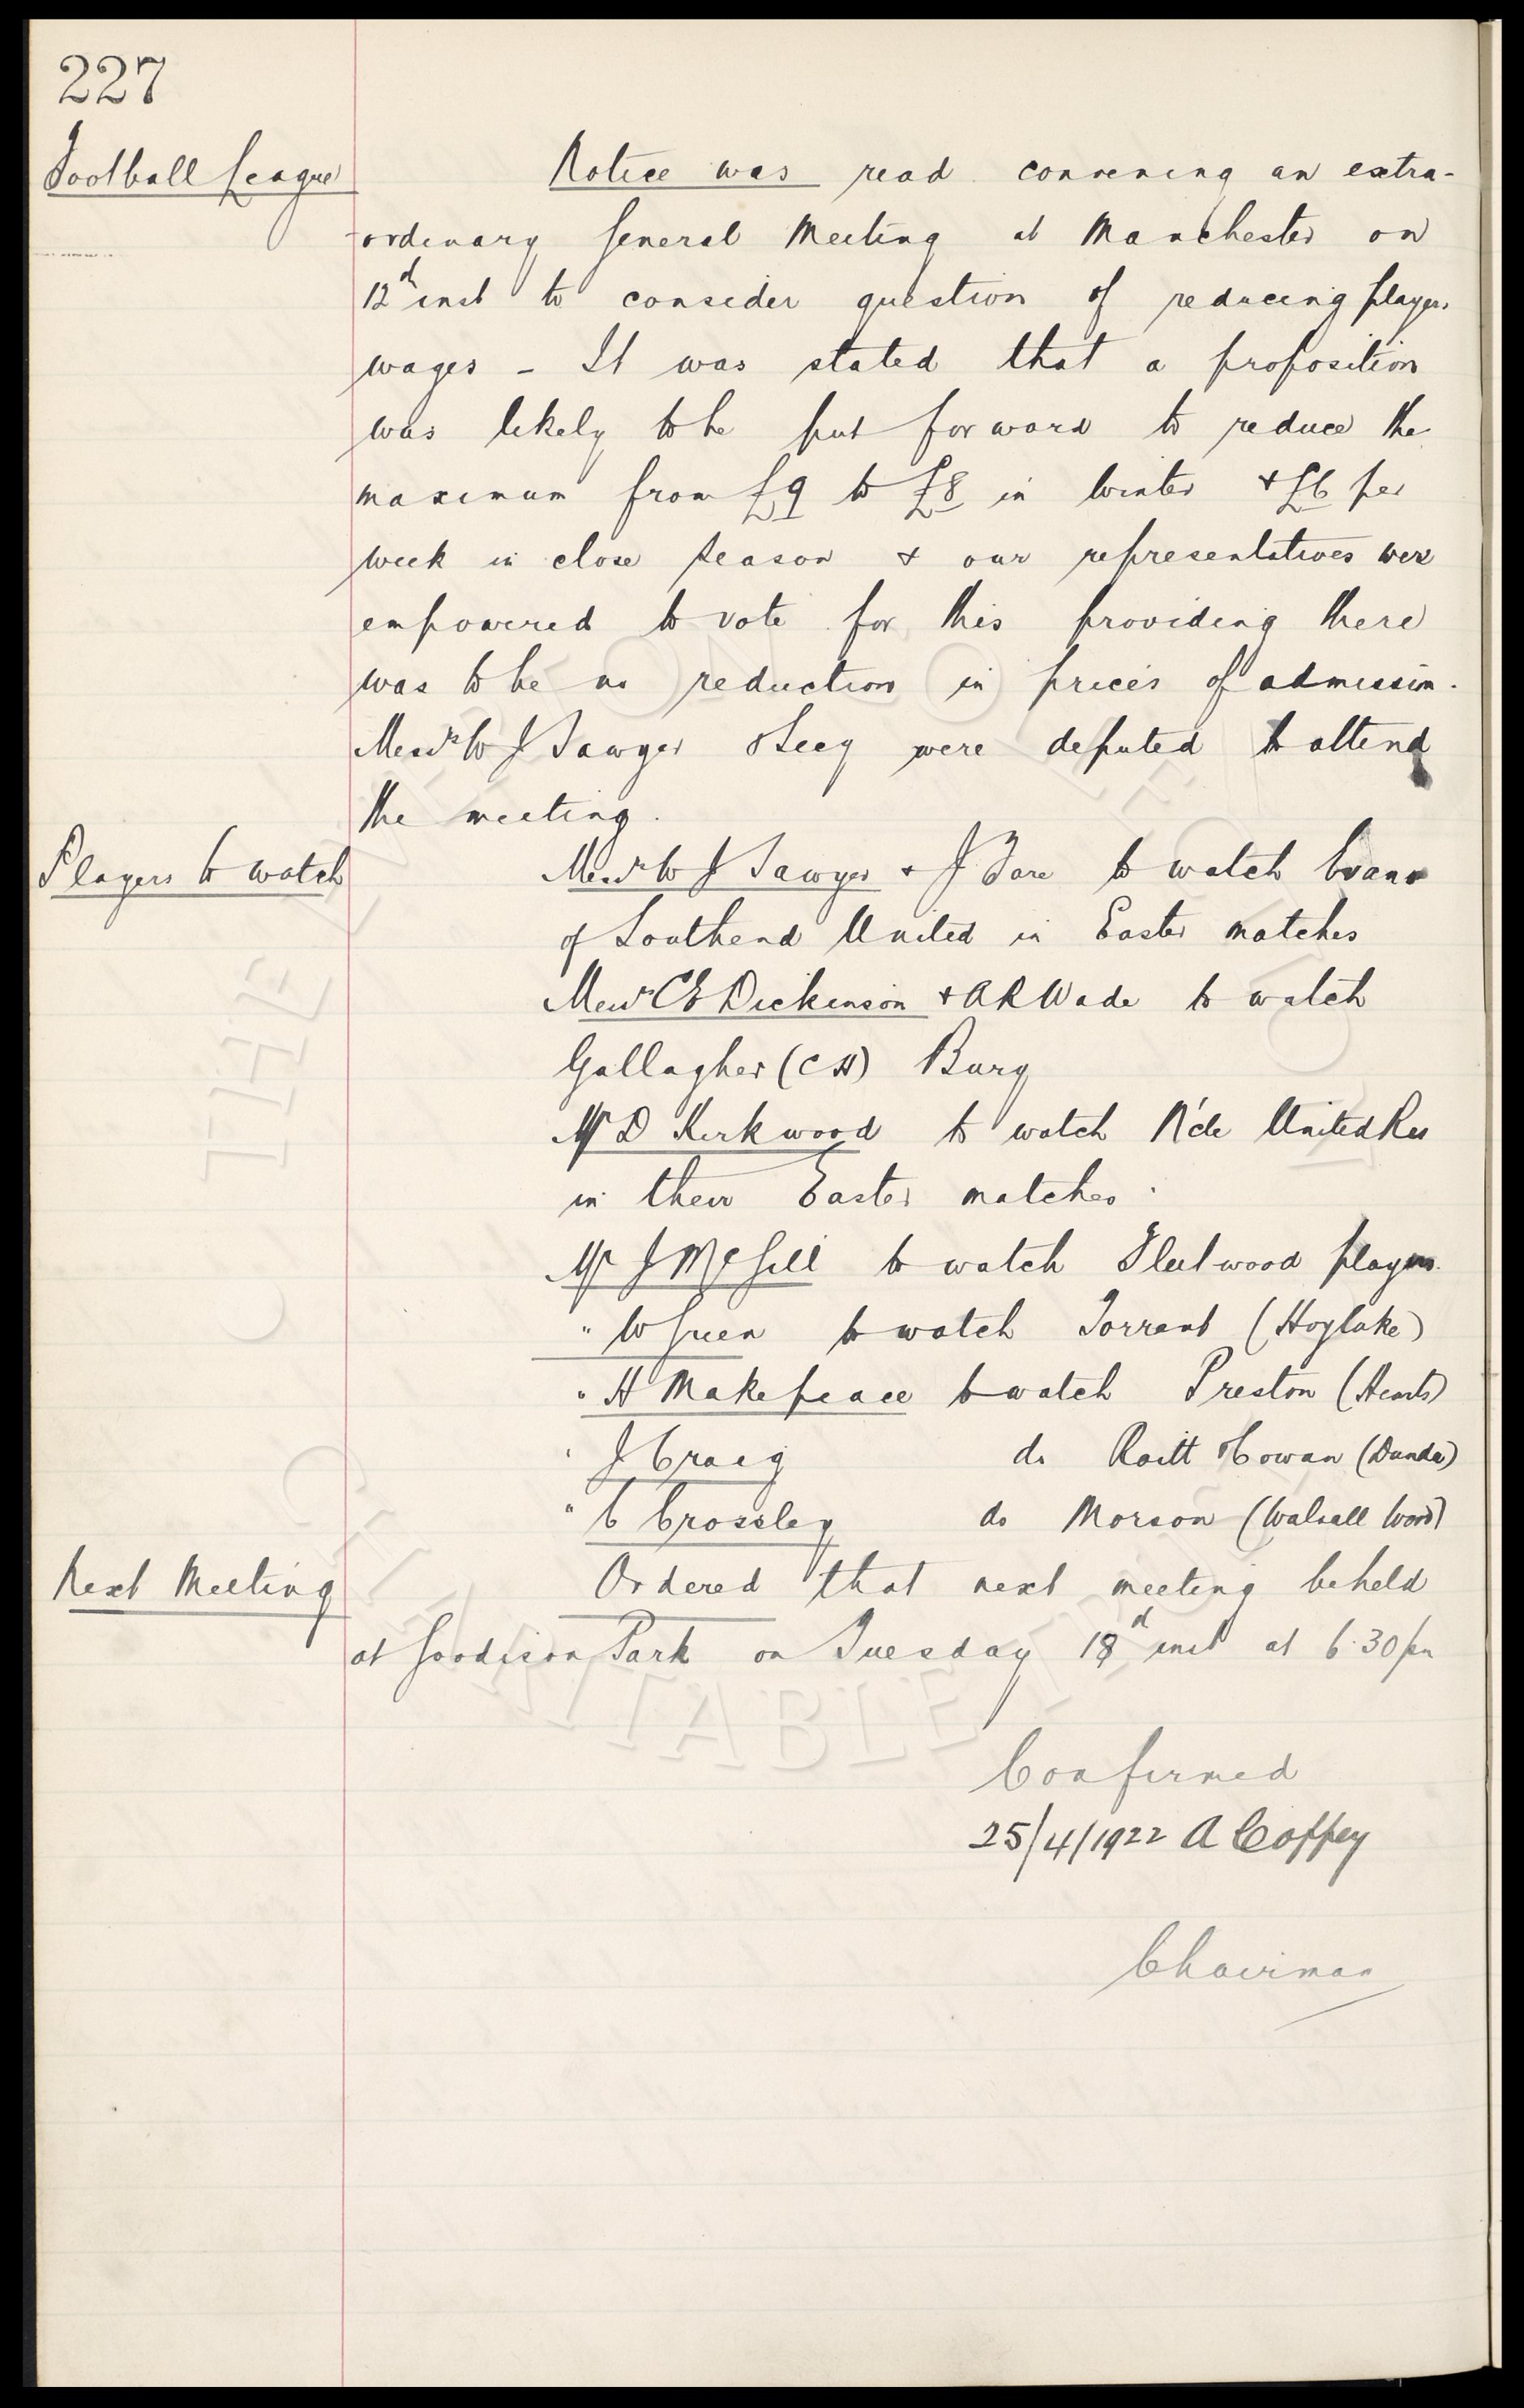 227
Football League
Notice was read convening an extra-
ordinary General Meeting at Manchester on
12d inst to consider question of reducing players
wages - It was stated that a proposition
was likely to be put forward to reduce the
maximum from £9 to £8 in Winter & £6 per
week in close season & our representatives were
empowered to vote for this providing there
was to be no reduction in prices of admission.
Messrs W J Sawyer & were deputed to attend
the meeting.
Players to watch
Messrs W J Sawyer & J Fare to watch Evans
of Southend United in Easter matches
Messrs C E Dickinson & A R Wade to watch
Gallagher (C H) Bury
Mr D Kirkwood to watch N'cle United Res
in their Easter matches.
Mr J McGill to watch Fleetwood players.
" W Green to watch Torrant (Hoylake)
" H Makepeace to watch Preston (Hearts)
" J Craig do Raitt & Cowan (Dundee)
" C Crossley do Morson (Walsall Wood)
Next Meeting
Ordered that next meeting be held
at Goodison Park on Tuesday 18d inst at 6.30 pm
Confirmed
25/4/1922 A Coffey
Chairman